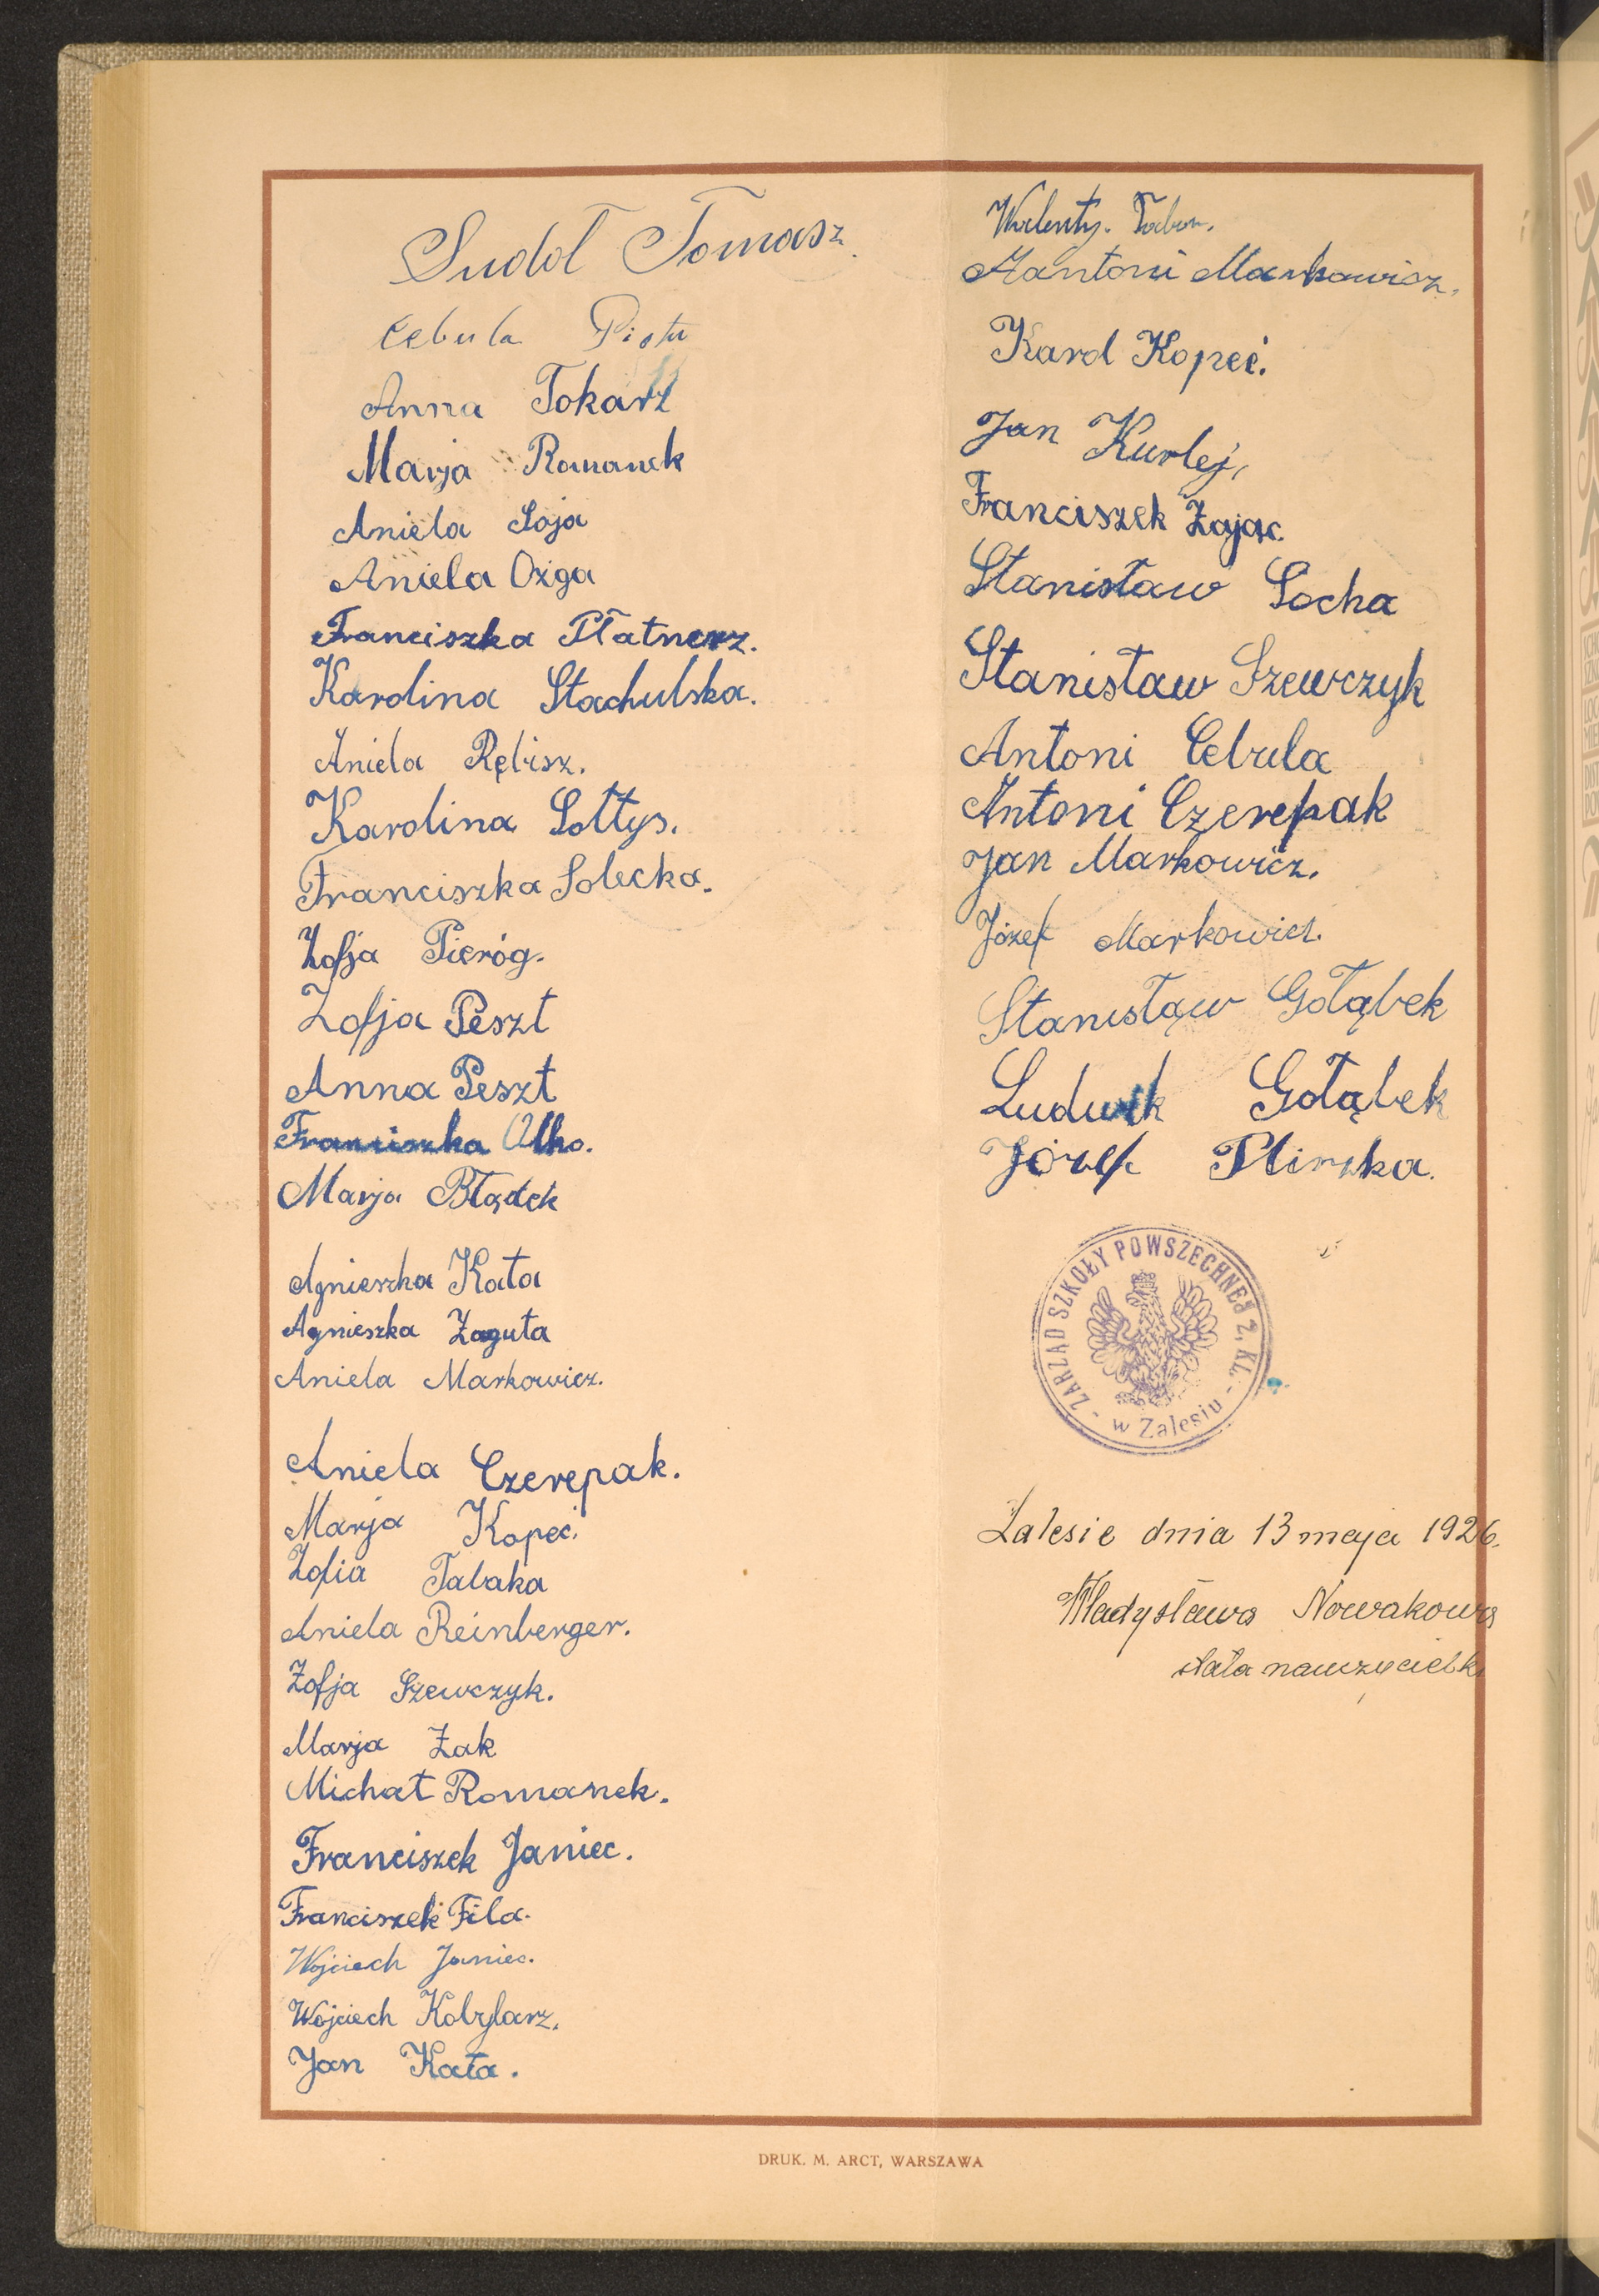 Sudoł Tomasz.
Cebula Piotr
Anna Tokarz
Marja Romanek
Aniela Soja
Aniela Ożga
Franciszka Płatnerz.
Karolina Stachulska.
Aniela Rębisz.
Karolina Sołtys.
Franciszka Solecka.
Zofja Pieróg.
Zofja Peszt
Anna Peszt
Franciszka
Marja Błądek
Agnieszka Kata
Agnieszka Zaguta
Aniela Markowicz.
Aniela Czerepak.
Marja Kopeć.
Zofia Tabaka
Aniela Reinberger.
Zofja Szewczyk.
Marja Żak
Michał Romanek.
Franciszek Janiec.
Franciszek Fila.
Wojciech Janiec.
Wojciech Kobylarz.
Jan Kata.
Walenty.
Aantoni Markowicz.
Karol Kopeć.
Jan Kurlej,
Franciszek Zając.
Stanisław Socha
Stanisław Szewczyk
Antoni Cebula
Antoni Czerepak
Jan Markowicz.
Józef Markowicz.
Stanisłąw Gołąbek
Ludwik Gołąbek
Józef
- ZARZĄD SZKOŁY POWSZECHNEJ 2. KL. -
w Zalesiu
Zalesie dnia 13 maja 1926.
Władysława Nowakowa
stała nauczycielka
DRUK. M. ARCT, WARSZAWA